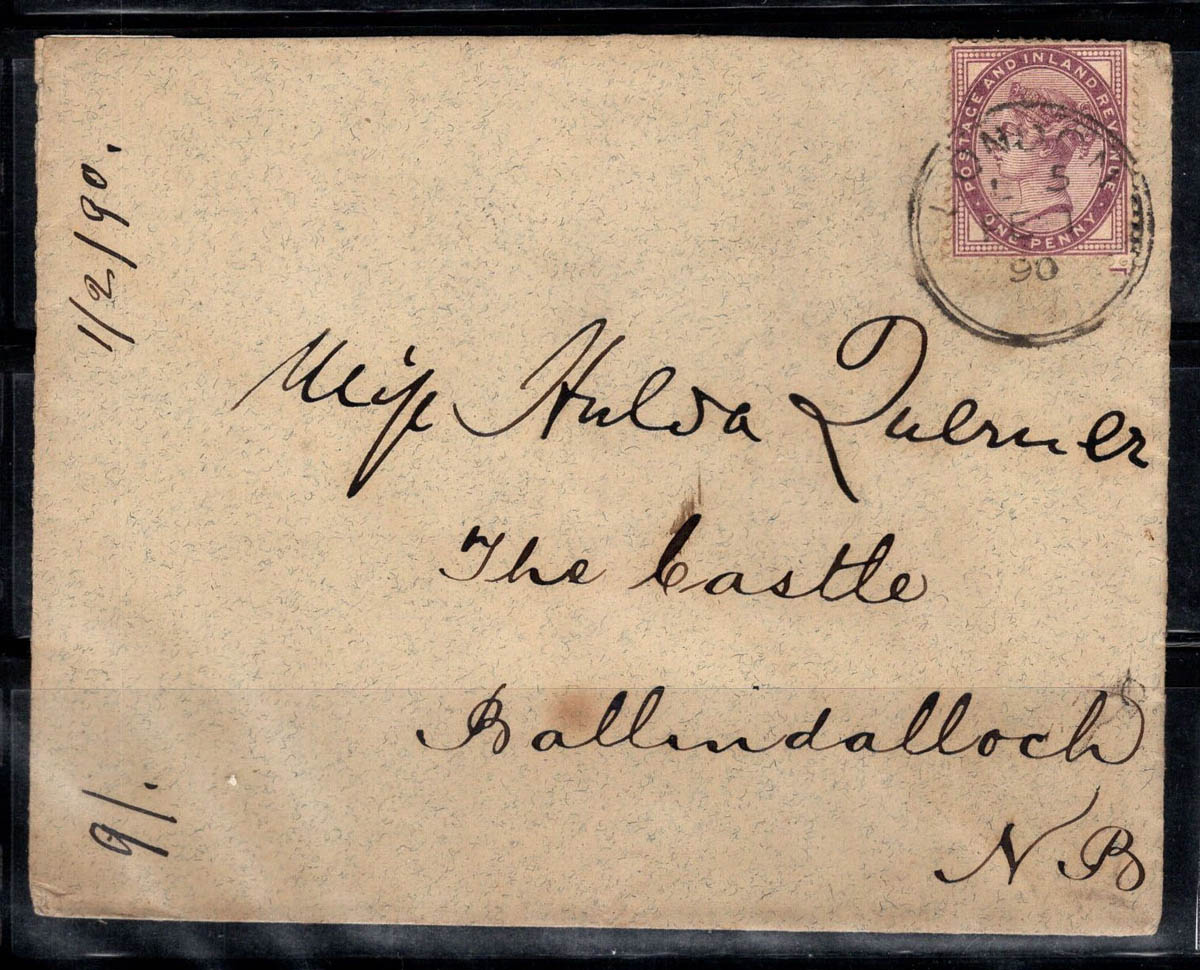 POSTAGE AND INLAND REVENUE
ONE PENNY
LONDON
5
90
1/2/90.
Miss Hulda Querner
The Castle
Ballindalloch
NB
9/.